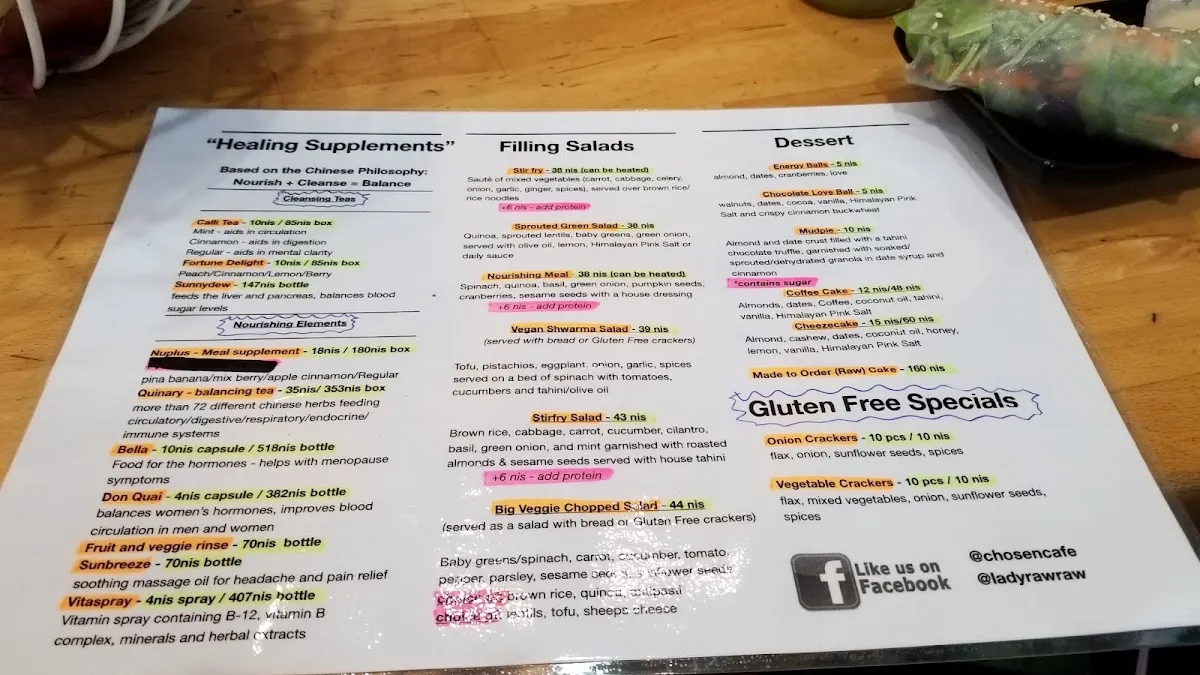 "Healing Supplements"
Based on the Chinese Philosophy:
Nourish + Cleanse = Balance
Cleansing Teas
Calli Tea - 10nis / 85nis box
Mint - aids in circulation
Cinnamon - aids in digestion
Regular - aids in mental clarity
Fortune Delight - 10nis / 85nis box
Peach/Cinnamon/Lemon/Berry
Sunnydew - 147nis bottle
feeds the liver and pancreas, balances blood
sugar levels
Nourishing Elements
Nuplus - Meal supplement - 18nis / 180nis box
pina banana/mix berry/apple cinnamon/Regular
Quinary - balancing tea - 35nis/ 353nis box
more than 72 different chinese herbs feeding
circulatory/digestive/respiratory/endocrine/
immune systems
Bella - 10nis capsule / 518nis bottle
Food for the hormones - helps with menopause
symptoms
Don Quai - 4nis capsule / 382nis bottle
balances women's hormones, improves blood
circulation in men and women
Fruit and veggie rinse - 70nis bottle
Sunbreeze - 70nis bottle
soothing massage oil for headache and pain relief
Vitaspray - 4nis spray / 407nis bottle
Vitamin spray containing B-12, vitamin B
complex, minerals and herbal extracts
Filling Salads
Stir fry - 38 nis (can be heated)
Sauté of mixed vegetables (carrot, cabbage, celery,
onion, garlic, ginger, spices), served over brown rice/
rice noodles
+6 nis - add protein
Sprouted Green Salad - 38 nis
Quinoa, sprouted lentils, baby greens, green onion,
served with olive oil, lemon, Himalayan Pink Salt or
daily sauce
Nourishing Meal - 38 nis (can be heated)
Spinach, quinoa, basil, green onion, pumpkin seeds,
cranberries, sesame seeds with a house dressing
+6 nis - add protein
Vegan Shwarma Salad - 39 nis
(served with bread or Gluten Free crackers)
Tofu, pistachios, eggplant, onion, garlic, spices
served on a bed of spinach with tomatoes,
cucumbers and tahini/olive oil
Stirfry Salad - 43 nis
Brown rice, cabbage, carrot, cucumber, cilantro,
basil, green onion, and mint garnished with roasted
almonds & sesame seeds served with house tahini
+6 nis - add protein
Big Veggie Chopped Salad - 44 nis
(served as a salad with bread or Glutan Free crackers)
Baby greens/spinach, carrot, cucumber, tomato,
pepper, parsley, sesame seeds, sunflower seeds
brown rice, quinoa, antipasti
choice of: lentils, tofu, sheeps cheese
Dessert
Energy Balls - 5 nis
almond, dates, cranberries, love
Chocolate Love Ball - 5 nis
walnuts, dates, cocoa, vanilla, Himalayan Pink
Salt and crispy cinnamon buckwheat
Mudpie - 10 nis
Almond and date crust filled with a tahini
chocolate truffle, garnished with soaked/
sprouted/dehydrated granola in date syrup and
cinnamon
*contains sugar
Coffee Cake - 12 nis/48 nis
Almonds, dates, Coffee, coconut oil, tahini,
vanilla, Himalayan Pink Salt
Cheezecake - 15 nis/60 nis
Almond, cashew, dates, coconut oil, honey,
lemon, vanilla, Himalayan Pink Salt
Made to Order (Raw) Cake - 160 nis
Gluten Free Specials
Onion Crackers - 10 pcs / 10 nis
flax, onion, sunflower seeds, spices
Vegetable Crackers - 10 pcs / 10 nis
flax, mixed vegetables, onion, sunflower seeds,
spices
f
Like us on
Facebook
@chosencafe
@ladyrawraw